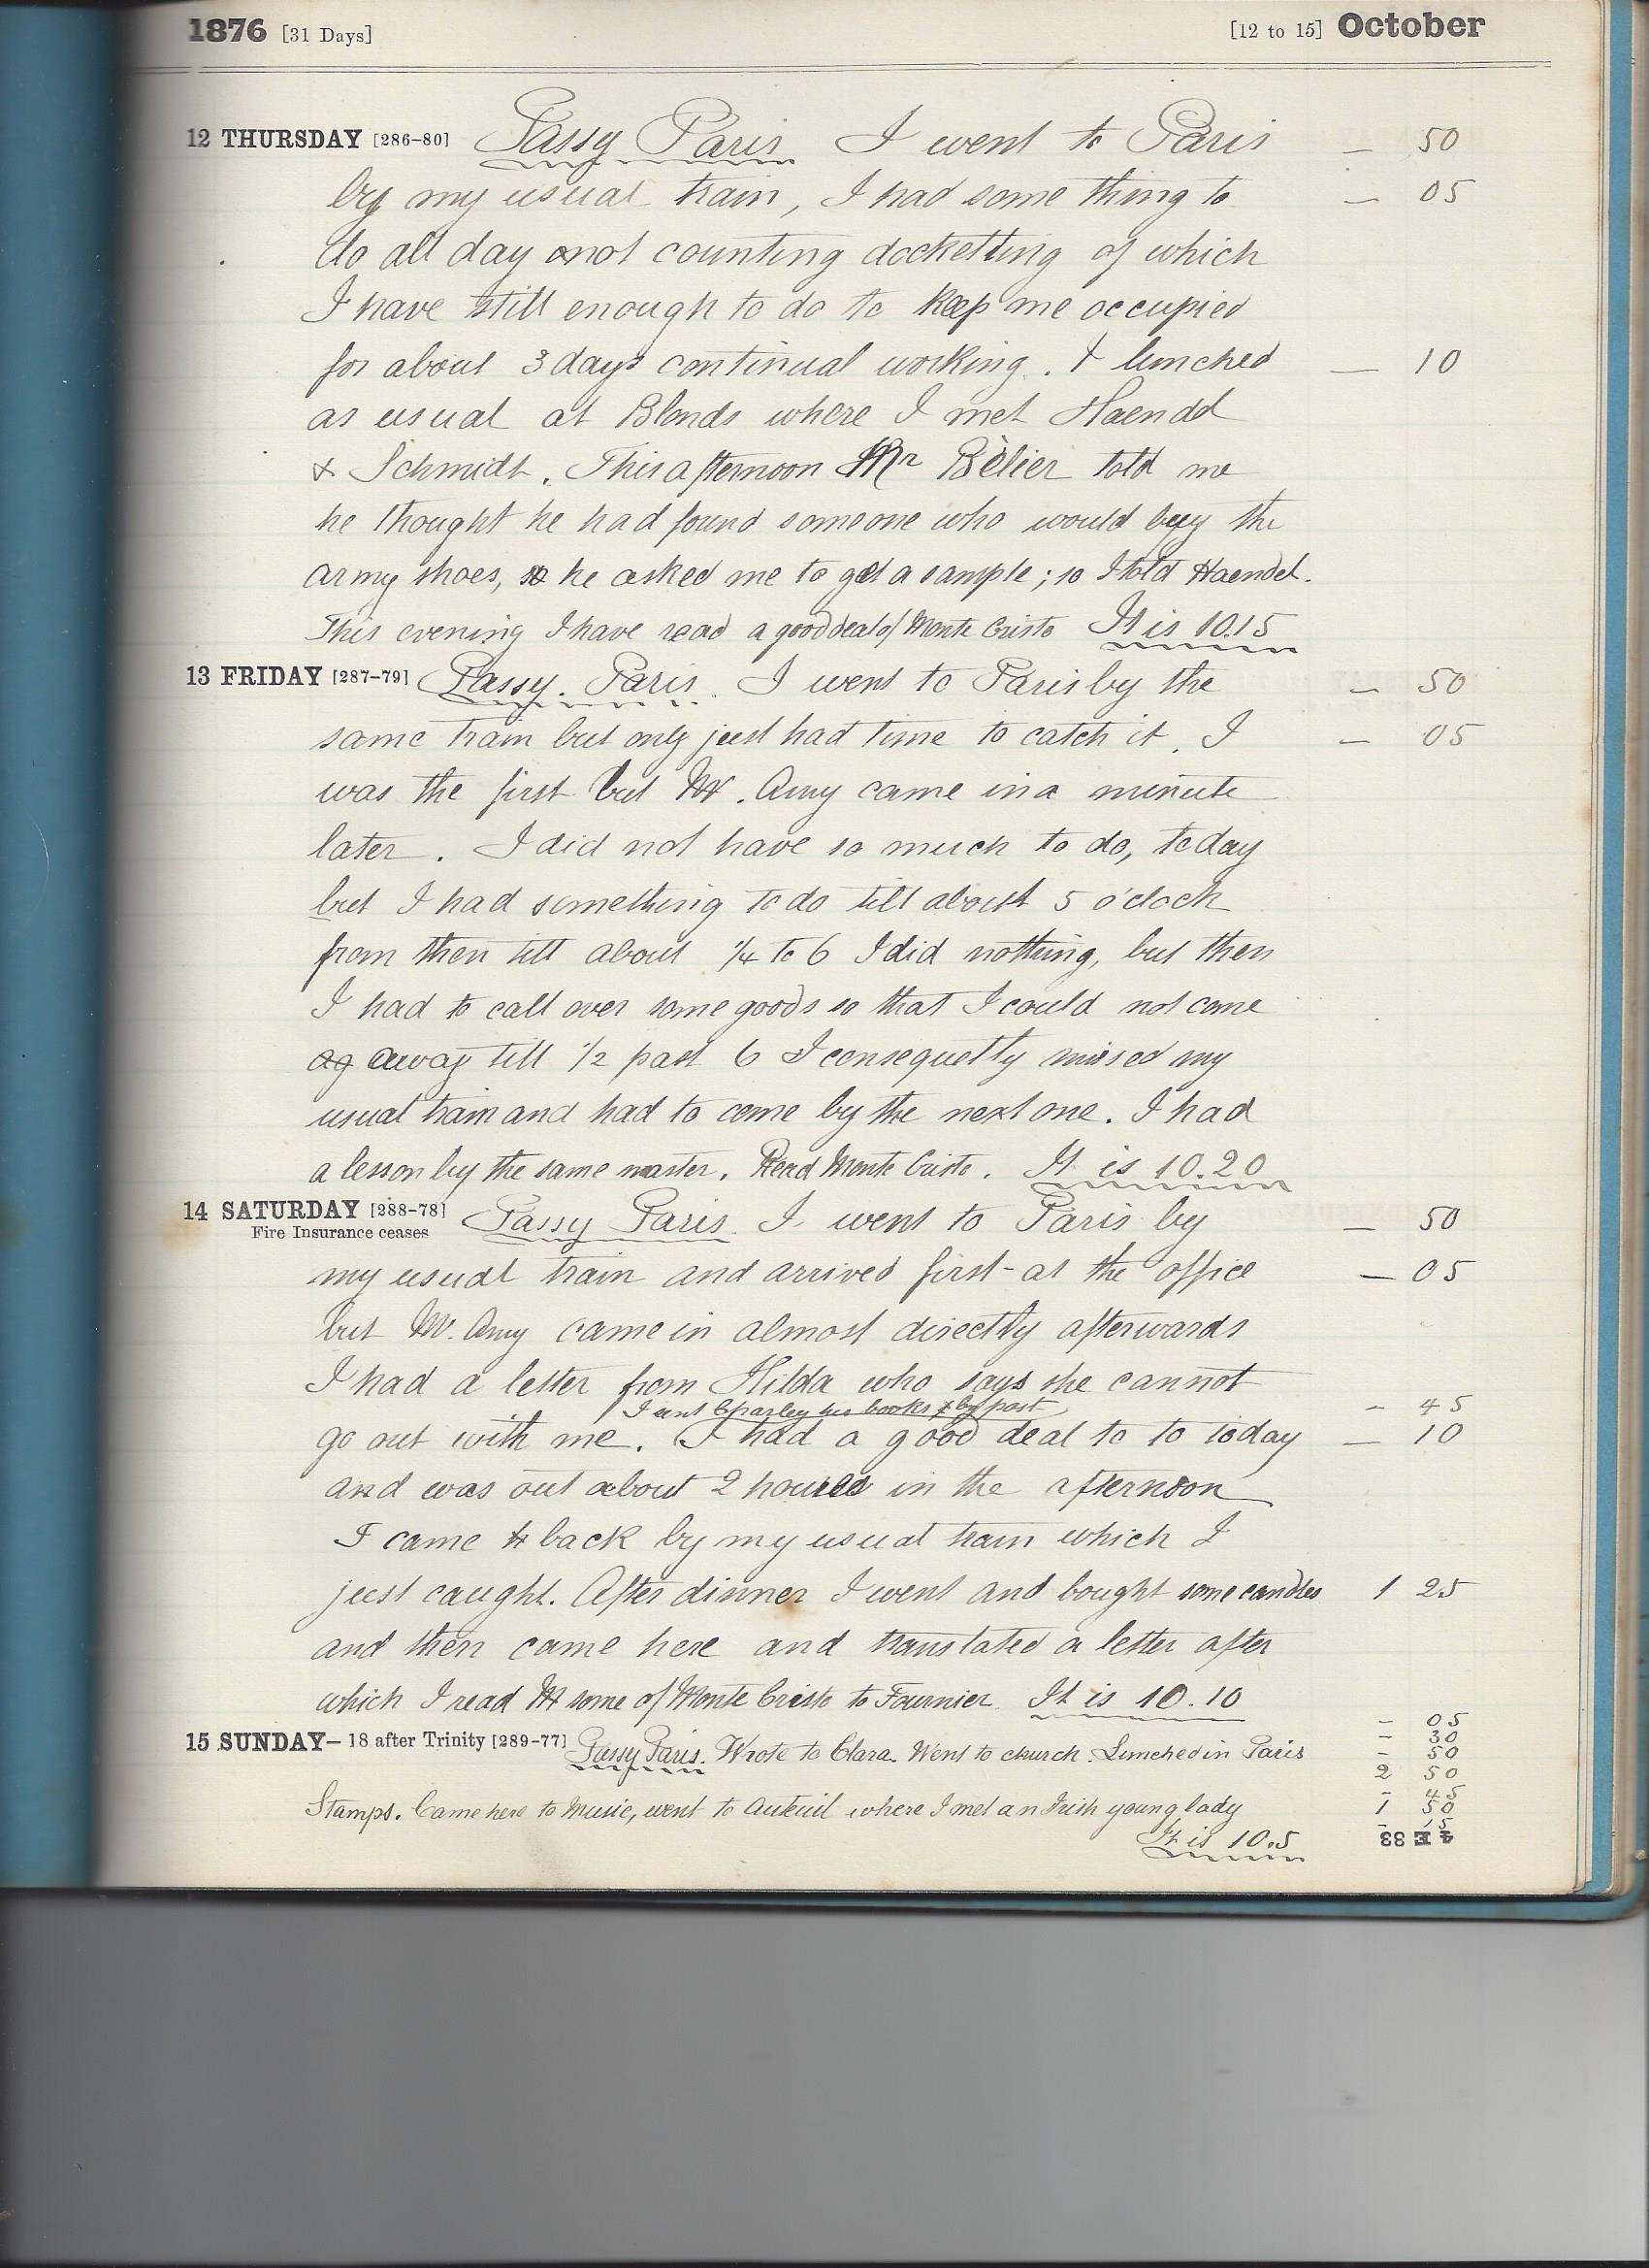 1876 [31 Days] [12 to 15] October
12 THURSDAY [286-80] Passy Paris I went to Paris — 50
by my usual train, I had some thing to — 05
do all day not counting docketting of which
I have still enough to do to keep me occupied
for about 3 days continual working. I lunched — 10
as usual at Blonds where I met Haendel
& Schmidt. This afternoon Mr Bèlier told me
he thought he had found someone who would buy the
army shoes, so he asked me to get a sample; so I told Haendel.
This evening I have read a good deal of Monte Cristo It is 10.15
13 FRIDAY [287-79] Passy. Paris. I went to Paris by the — 50
same train but only just had time to catch it. I — 05
was the first but Mr. Amy came in a minute
later. I did not have so much to do, today
but I had something to do till about 5 o'clock
from then till about 1/4 to 6 I did nothing, but then
I had to call over some goods so that I could not come
ag away till 1/2 past 6 I consequetly missed my
usual train and had to come by the next one. I had
a lesson by the same master. Read Monte Cristo. It is 10.20
14 SATURDAY [288-78] Passy Paris. I went to Paris by — 50
Fire Insurance ceases
my usual train and arrived first at the office — 05
but M. Amy came in almost directly afterwards
I had a letter from Hilda who says she cannot
I sent Charley his books by post — 45
go out with me. I had a good deal to to today — 10
and was out about 2 hours in the afternoon
I came back by my usual train which I
just caught. After dinner I went and bought some candles 1 25
and then came here and translated a letter after
which I read some of Monte Cristo to Fournier. It is 10.10
— 05
— 30
15 SUNDAY—18 after Trinity [289-77] Passy Paris. Wrote to Clara. Went to church. Lunched in Paris — 50
2 50
— 45
Stamps. Came here to Music, went to Auteuil where I met an Irish young lady 1 50
— 15
It is 10.5 4 E 33